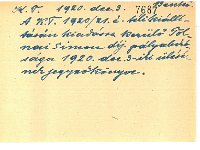 K. T. 1920. dec. 3. Benkő
7687
A K.T. 1920/21. é. téli kiállí-
tásán kiadásra kerülő Tol-
nai Simon díj pályabíró-
sága 1920. dec. 3-iki ülésé-
nek jegyzőkönyve.